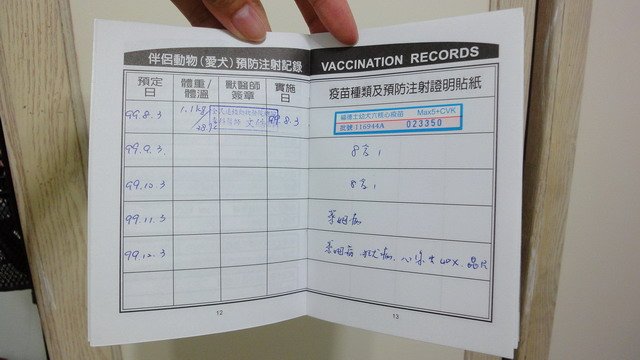 伴侶動物(愛犬)預防注射記錄
VACCINATION RECORDS
預定日
體重/體溫
獸醫師簽章
實施日
疫苗種類及預防注射證明貼紙
99.8.3
1.1kg
99.8.3
幼犬六核心疫苗 Max5+CVK
批號:116944A 023350
99.9.3
8合1
99.10.3
8合1
99.11.3
萊姆病
99.12.3
萊姆病、狂犬病、心絲虫4DX、晶片
12
13